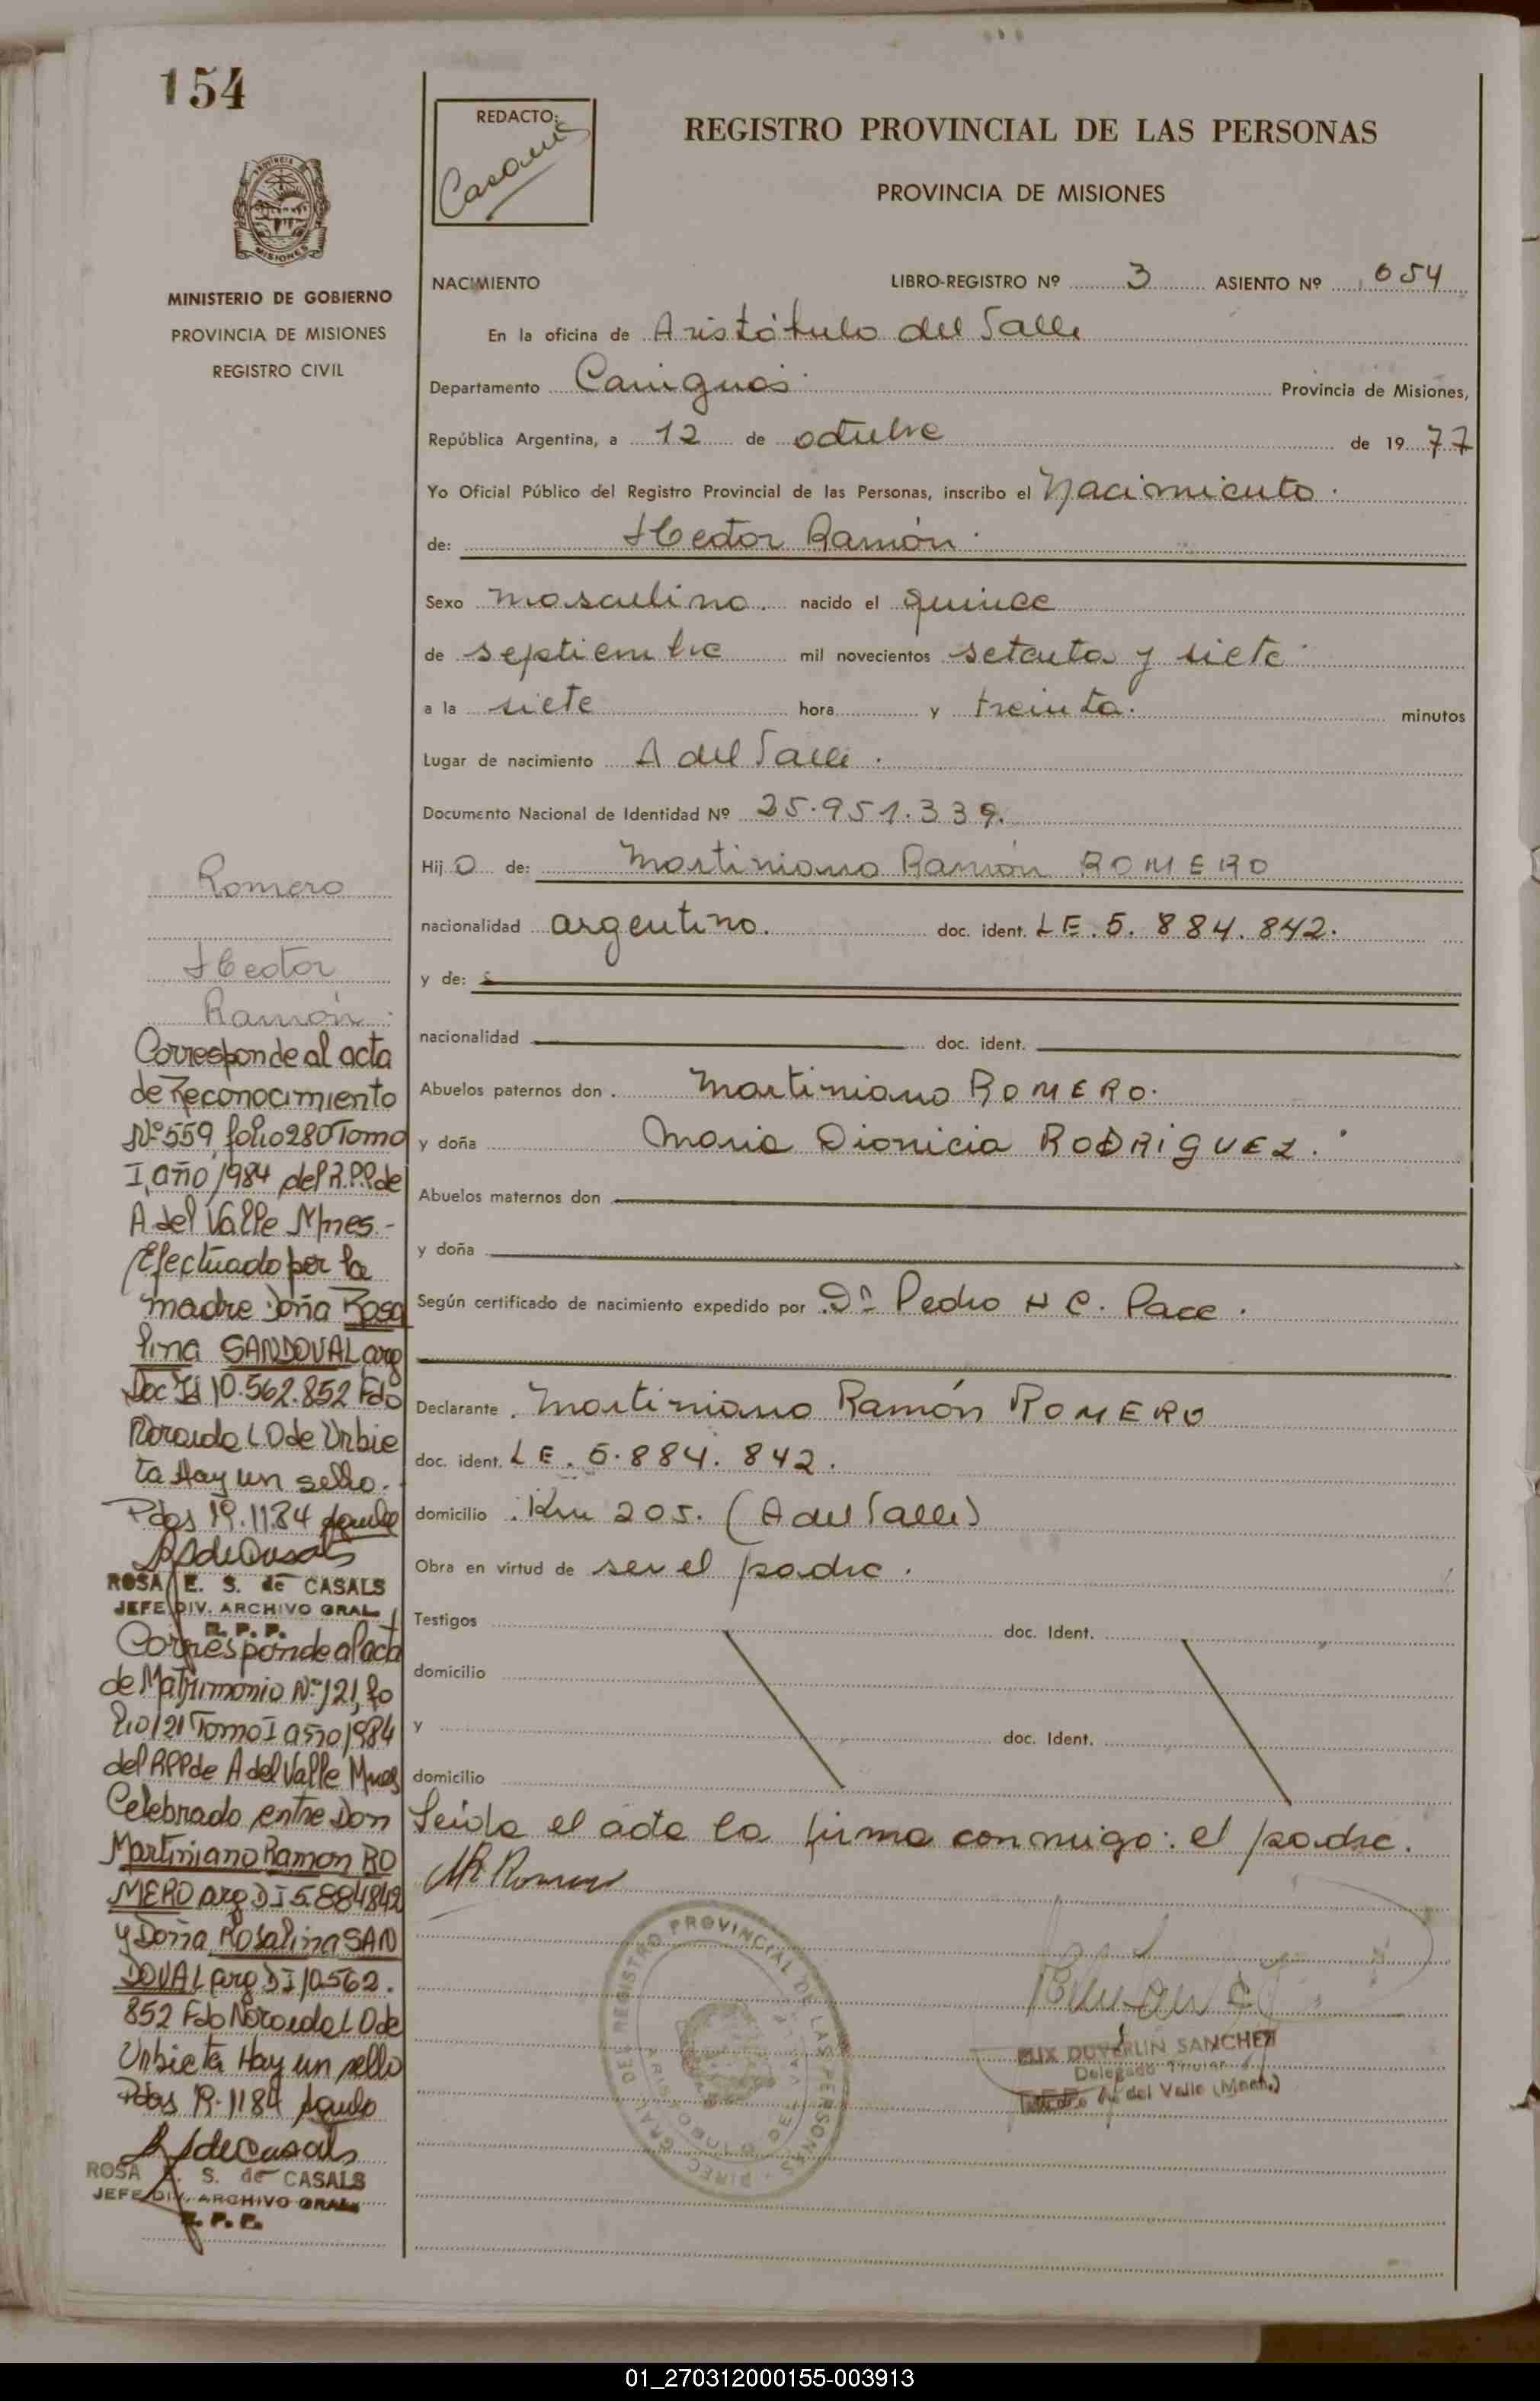 154
MINISTERIO DE GOBIERNO
PROVINCIA DE MISIONES
REGISTRO CIVIL
Romero
Hector
Ramón
Corresponde al acta
de Reconocimiento
Nº 559, folio 280 Tomo
I, año 1984 del R.P.P. de
A del Valle Mnes.-
Efectuado por la
madre Doña Rosa
lina SANDOVAL arg
Doc Id 10.562.852 Fdo
Noraida L O de Urbie
ta Hay un sello.-
Pdas 19.11 84
ROSA E. S. de CASALS
JEFE DIV. ARCHIVO GRAL.
R. P. P.
Corresponde al acta
de Matrimonio Nº 121, fo
lio 121 Tomo I año 1984
del RPP de A del Valle Mnes
Celebrado entre Don
Martiniano Ramon RO
MERO arg D I 5.884842
y Doña Rosalina SAN
DOVAL arg D I 10.562.
852 Fdo Noraida L O de
Urbieta Hay un sello
Pdas 19.11 84
ROSA E. S. de CASALS
JEFE DIV. ARCHIVO GRAL.
R. P. P.
REDACTO:
REGISTRO PROVINCIAL DE LAS PERSONAS
PROVINCIA DE MISIONES
NACIMIENTO LIBRO-REGISTRO Nº 3 ASIENTO Nº 654
En la oficina de Aristóbulo del Valle
Departamento Cainguás Provincia de Misiones,
República Argentina, a 12 de octubre de 1977
Yo Oficial Público del Registro Provincial de las Personas, inscribo el Nacimiento.
de: Hector Ramón.
Sexo masculino. nacido el quince
de septiembre mil novecientos setenta y siete.
a la siete hora y treinta. minutos
Lugar de nacimiento A del Valle.
Documento Nacional de Identidad Nº 25.951.339.
Hijo de: Martiniano Ramón ROMERO
nacionalidad argentino. doc. ident. LE. 5.884.842.
y de:
nacionalidad doc. ident.
Abuelos paternos don Martiniano ROMERO.
y doña Maria Dionicia RODRIGUEZ.
Abuelos maternos don
y doña
Según certificado de nacimiento expedido por Dr. Pedro H C. Pace.
Declarante Martiniano Ramón ROMERO
doc. ident. LE. 5.884.842.
domicilio Km 205. (A del Valle)
Obra en virtud de ser el padre.
Testigos doc. Ident.
domicilio
y doc. Ident.
domicilio
Leída el acta la firma conmigo: el padre.
MR Romero
DIREC. GRAL. DEL REGISTRO PROVINCIAL DE LAS PERSONAS
ARISTOBULO DEL VALLE
DUVERLIN SANCHEZ
Delegado Titular
del Valle (Mnes.)
01_270312000155-003913